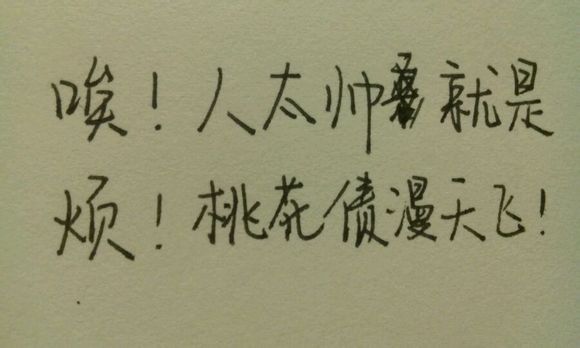 唉！人太帅就是
烦！桃花债漫天飞！